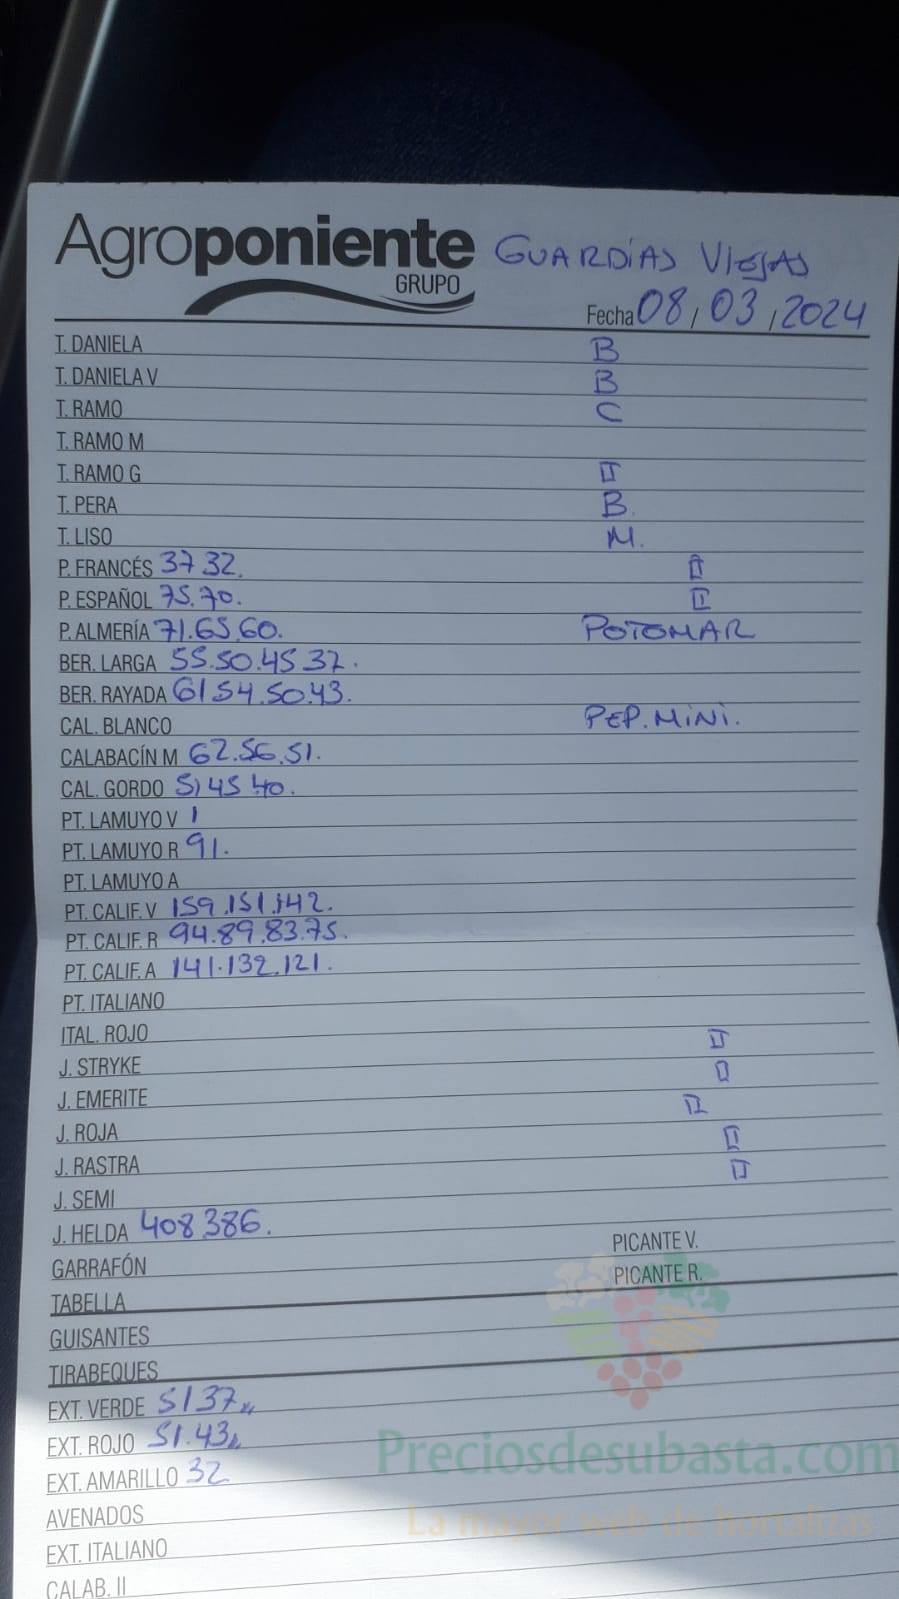 Agroponiente GUARDIAS VIEJAS
GRUPO
Fecha 08/03/2024
T. DANIELA B
T. DANIELA V B
T. RAMO C
T. RAMO M
T. RAMO G II
T. PERA B.
T. LISO M.
P. FRANCÉS 37 32. II
P. ESPAÑOL 75.70. II
P. ALMERÍA 71.65.60. POTOMAR
BER. LARGA 55.50.45 37.
BER. RAYADA 61 54.50.43.
CAL. BLANCO PEP. MINI.
CALABACÍN M 62.56.51.
CAL. GORDO 51 45 40.
PT. LAMUYO V 1
PT. LAMUYO R 91.
PT. LAMUYO A
PT. CALIF. V 159.151.142.
PT. CALIF. R 94.89.83.75.
PT. CALIF. A 141.132.121.
PT. ITALIANO
ITAL. ROJO II
J. STRYKE II
J. EMERITE
J. ROJA II
J. RASTRA II
J. SEMI
J. HELDA 408 386.
GARRAFÓN PICANTE V.
TABELLA PICANTE R.
GUISANTES
TIRABEQUES
EXT. VERDE 51 37
EXT. ROJO 51.43
EXT. AMARILLO 32
Preciosdesubasta.com
AVENADOS
La mayor web de hortalizas
EXT. ITALIANO
CALAB. II